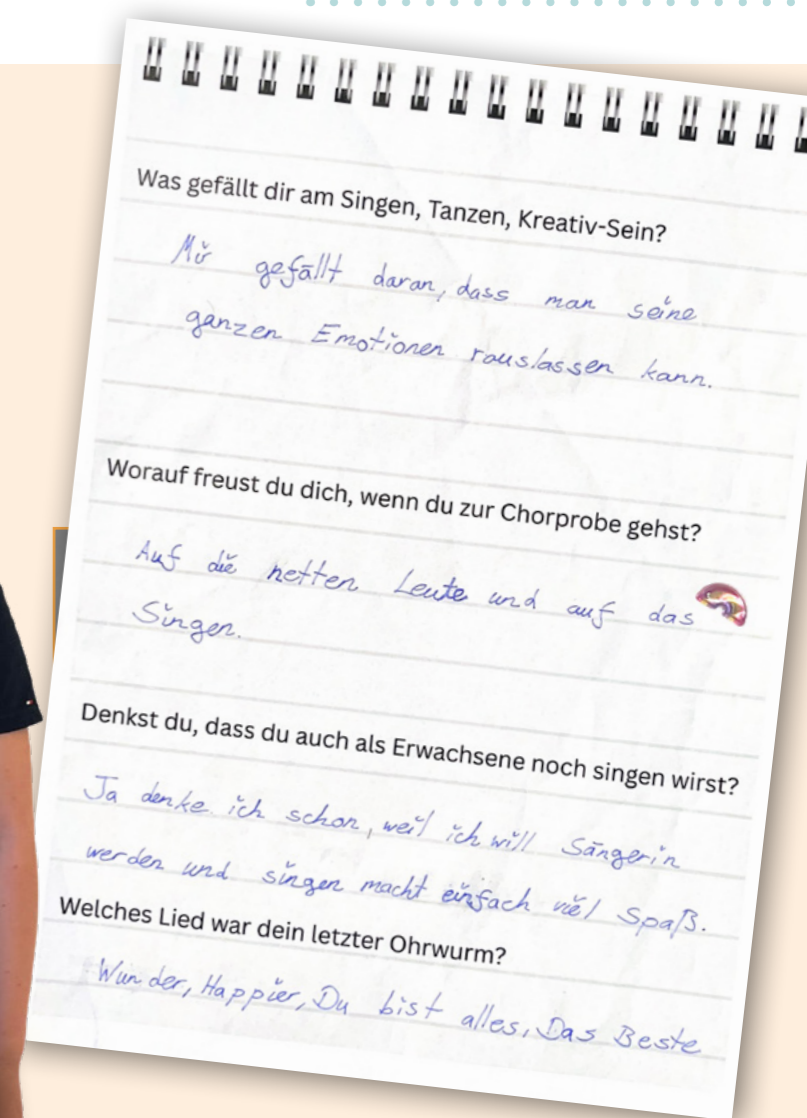 Was gefällt dir am Singen, Tanzen, Kreativ-Sein?
Mir gefällt daran, dass man seine
ganzen Emotionen rauslassen kann.
Worauf freust du dich, wenn du zur Chorprobe gehst?
Auf die netten Leute und auf das
Singen.
Denkst du, dass du auch als Erwachsene noch singen wirst?
Ja denke ich schon, weil ich will Sängerin
werden und singen macht einfach viel Spaß.
Welches Lied war dein letzter Ohrwurm?
Wunder, Happier, Du bist alles, Das Beste